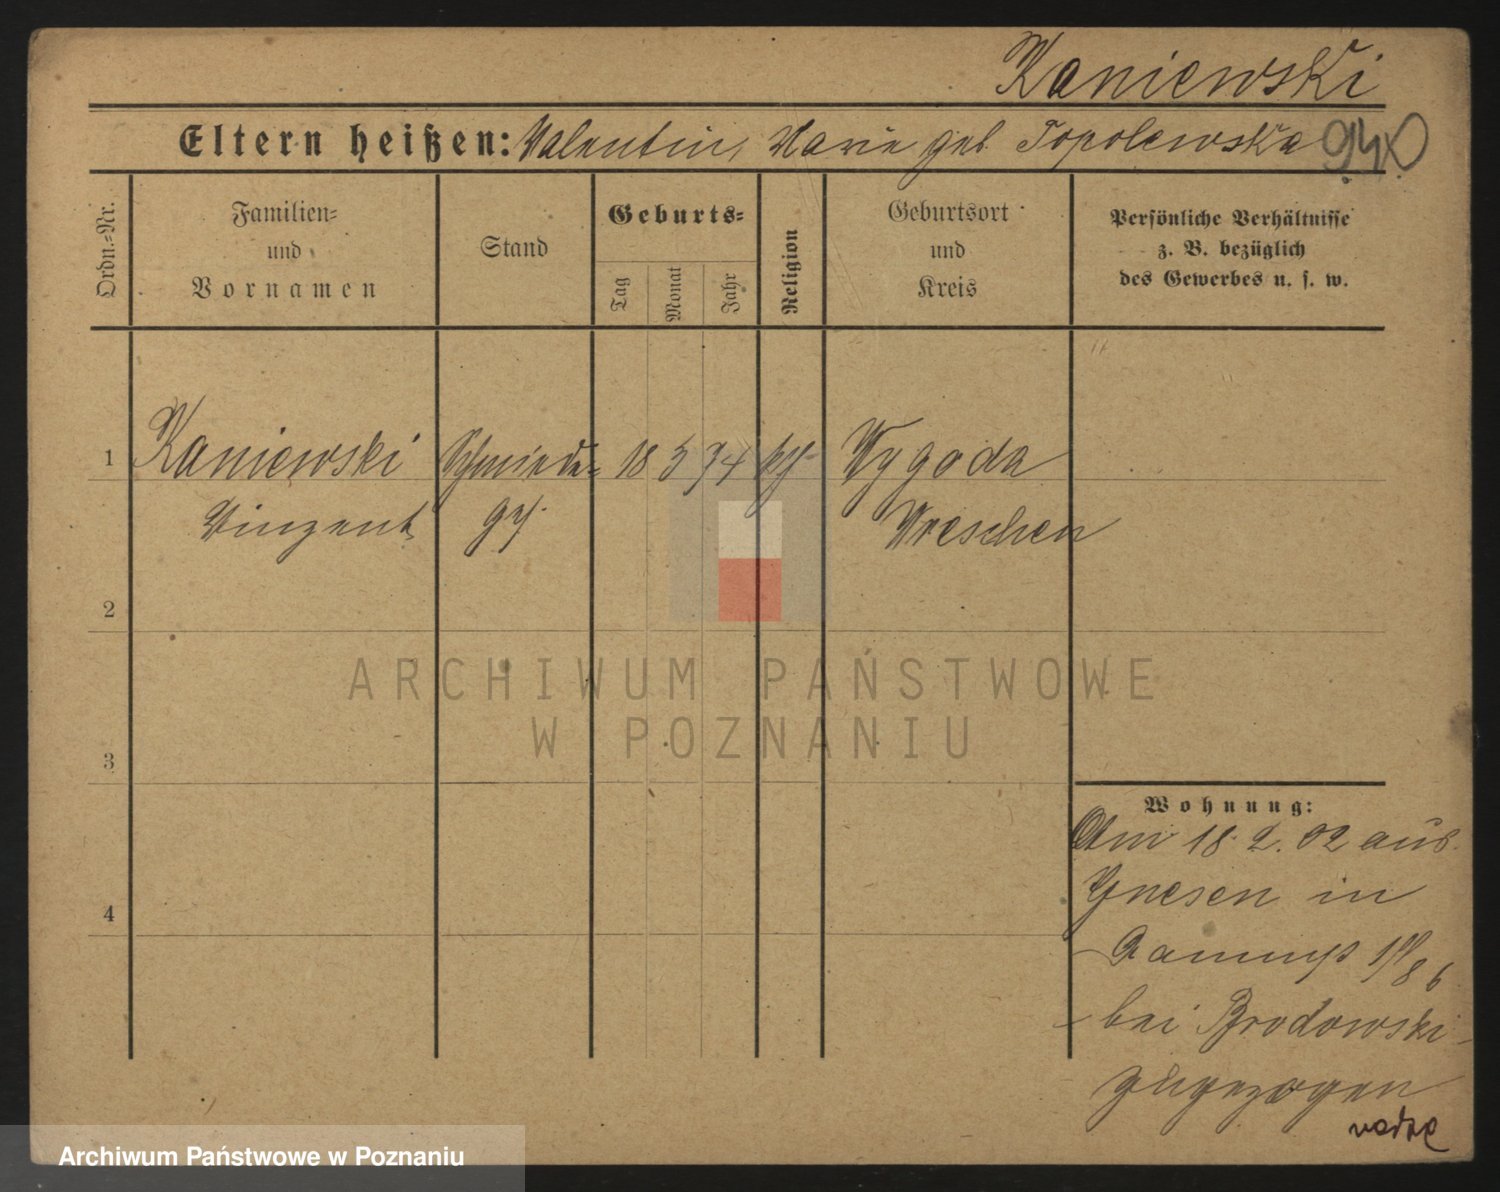 Kaniewski
Eltern heißen: Valentin, Marie geb Topolewska 940
Ordn.=Nr.
Familien=
und
Vornamen
Stand
Geburts=
Tag
Monat
Jahr
Religion
Geburtsort
und
Kreis
Persönliche Verhältnisse
z. B. bezüglich
des Gewerbes u. s. w.
1 Kaniewski Schmiede= 18 5 74 kth Wygoda
Vinzent gs. Wreschen
2
ARCHIWUM PAŃSTWOWE
W POZNANIU
3
Wohnung:
Am 18.2.02 aus
Gnesen in
4
bei Brodowski
zugezogen
Archiwum Państwowe w Poznaniu